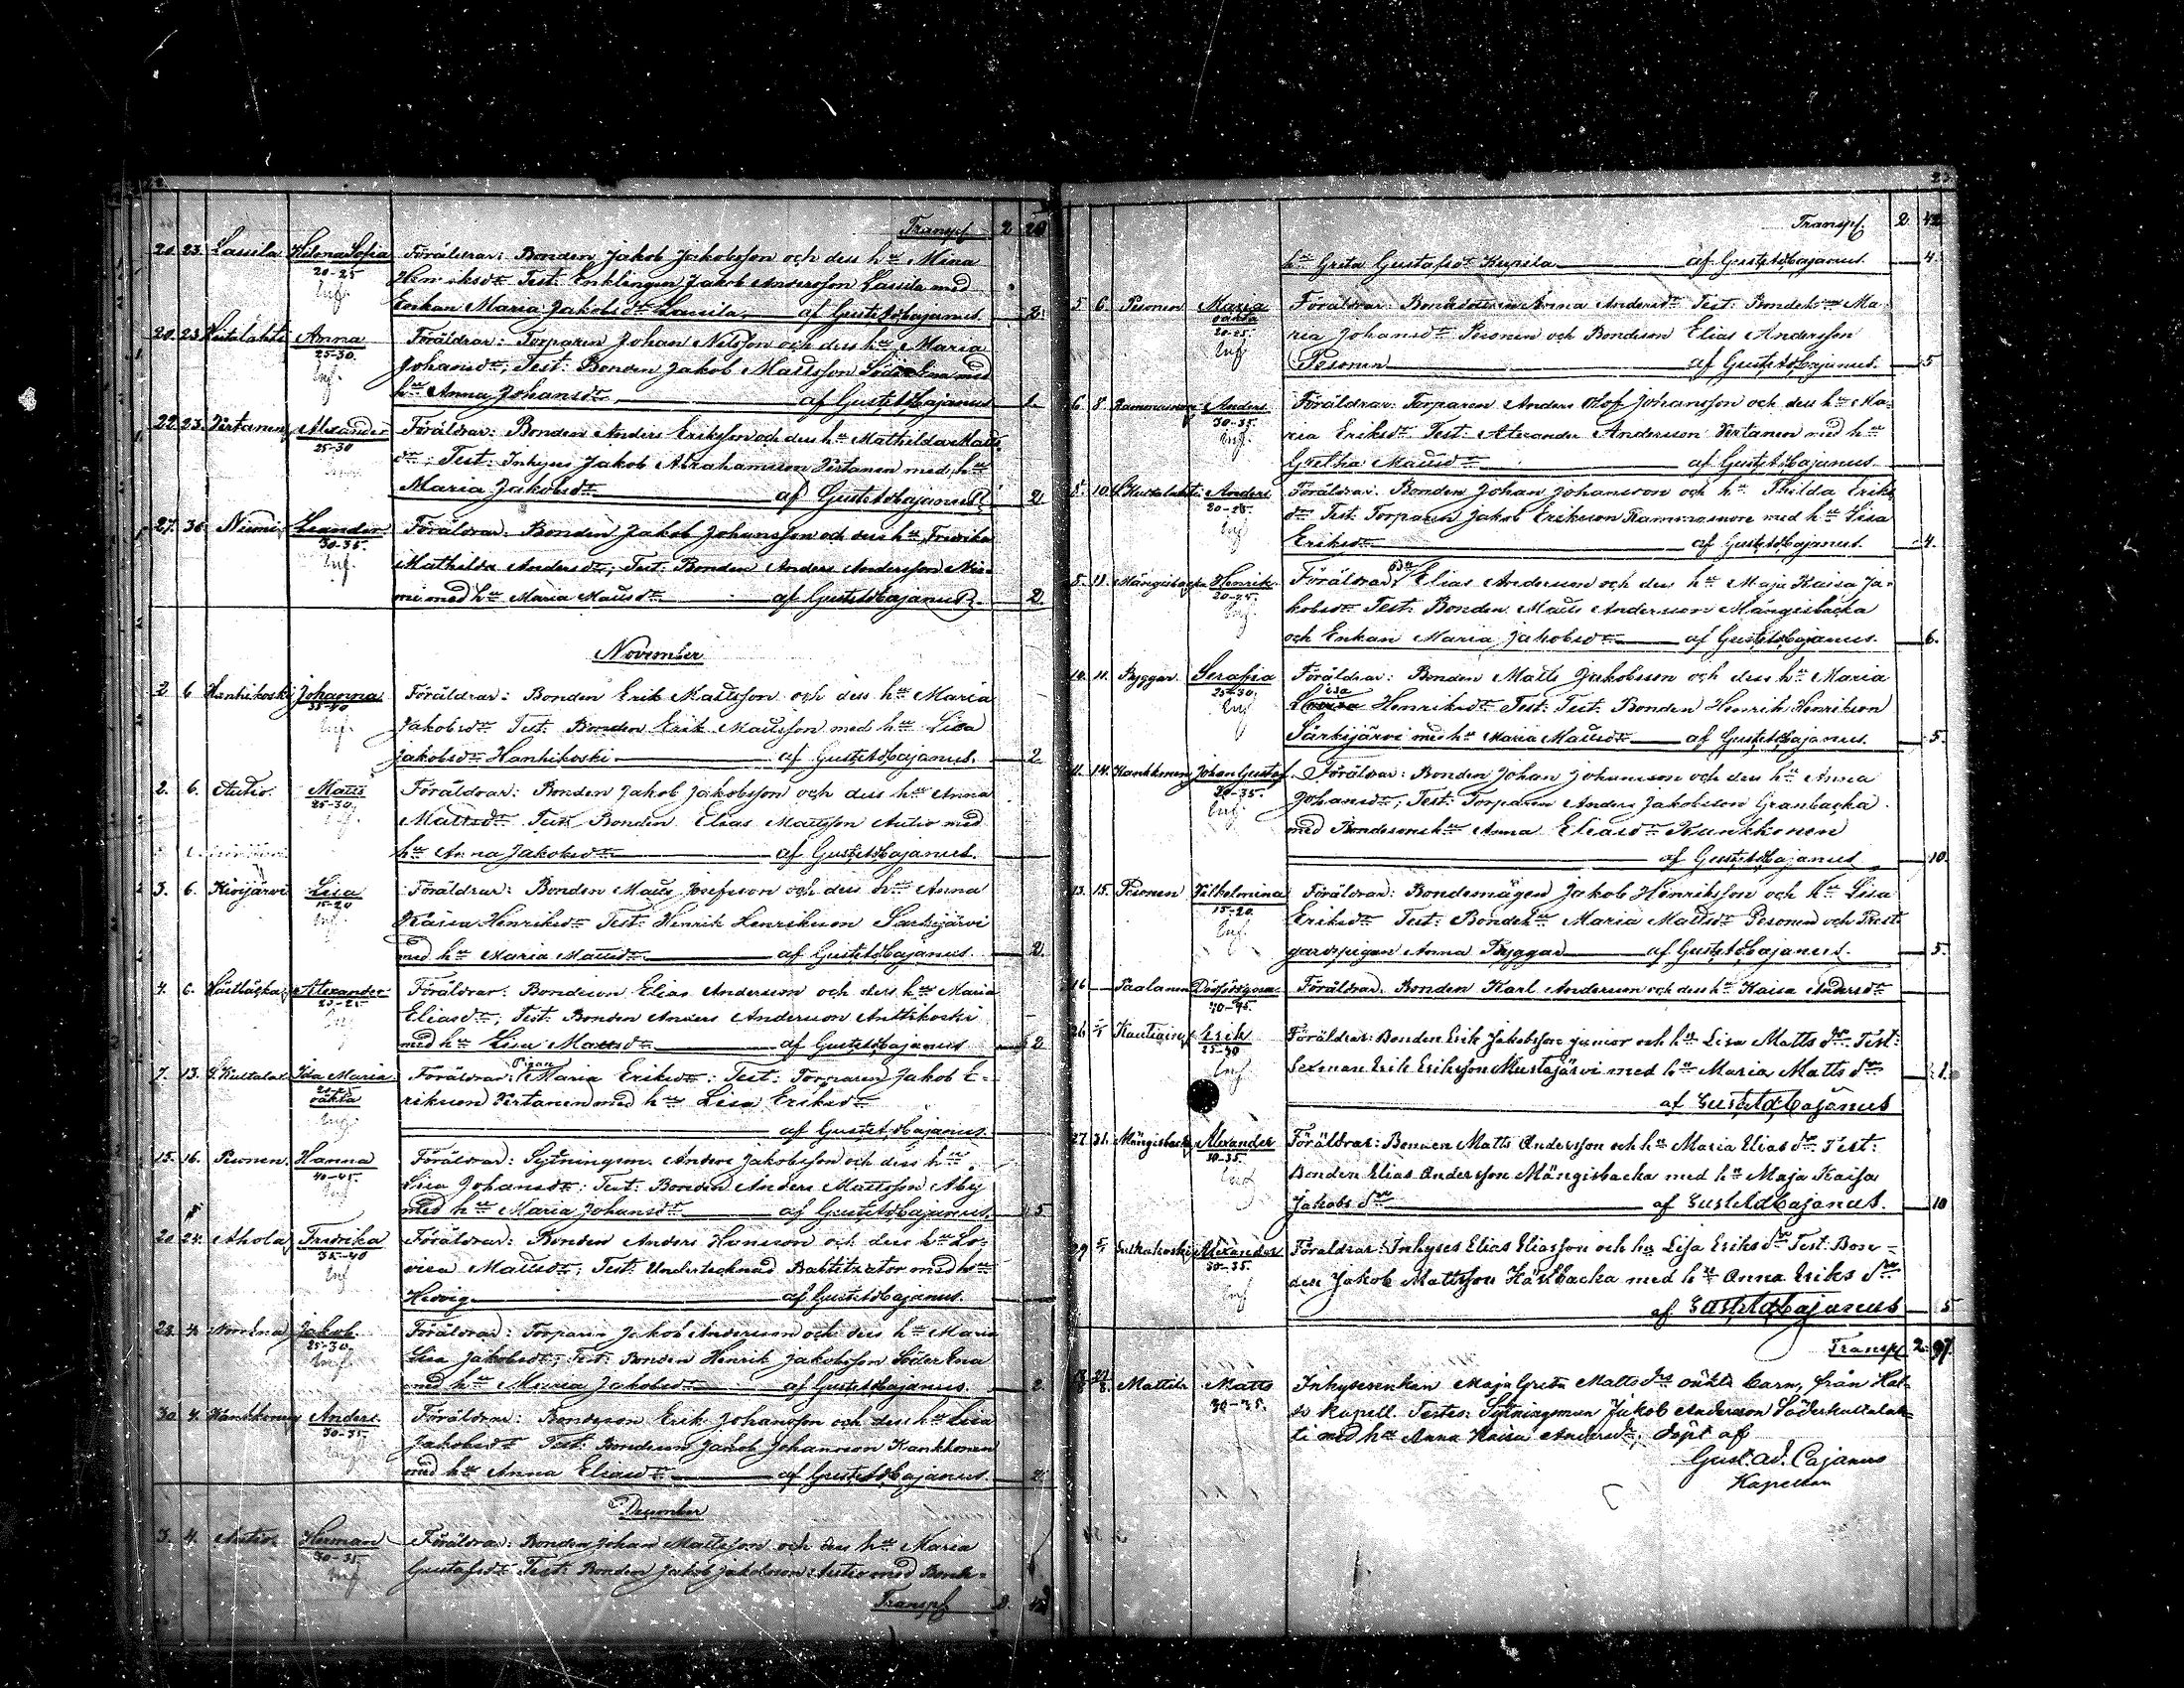 Transp. 2 20
20. 23. Lassila Helena Sofia Föräldrar: Bonden Jakob Jakobsson och dess hu Mina
20-25 Henriksdr Test: Enklingen Jakob Andersson Lassila med
Inf. Enkan Maria Jakobsdr Lassila. af Gust. Ad. Cajanus. 2.
20. 23 Anna Föräldrar: Torparen Johan Nilsson och dess hu Maria
25-30. Johansdr; Test: Bonden Jakob Mattsson Södra med
Inf. hu Anna Johansdr af Gust. Ad. Cajanus 1.
22. 23. Virtanen Alexander Föräldrar: Bonden Anders Eriksson och dess hu Mathilda Matts
25-30 dr; Test: Inhyses Jakob Abrahamsson Virtanen med hu
Maria Jakobsdr af Gust. Ad. Cajanus 2
27. 30. Niemi Leander Föräldrar: Bonden Jakob Johansson och dess hu Fredrika
30-35. Mathilda Andersdr; Test: Bonden Anders Andersson Nie-
Inf. mi med hu Maria Mattsdr af Gust. Ad. Cajanus. 2.
November
2. 6 Hanhikoski Johanna Föräldrar: Bonden Erik Mattsson och dess hu Maria
35-40 Jakobsdr Test: Bonden Erik Mattsson med hu Lisa
Inf. Jakobsdr Hanhikoski af Gust. Ad. Cajanus. 2
2. 6. Autio. Matts Föräldrar: Bonden Jakob Jakobsson och dess hu Anna
25-30. Mattsdr Test Bonden Elias Mattsson Autio med
hu Anna Jakobsdr af Gust. Ad. Cajanus.
3. 6. Kivijärvi Lisa Föräldrar: Bonden Matts Josefsson och dess hu Anna
15-20 Kaisa Henriksdr Test: Henrik Henriksson Särkijärvi
Inf. med hu Maria Mattsdr af Gust. Ad. Cajanus. 2.
4. 6. Hästbacka Alexander Föräldrar: Bondeson Elias Andersson och dess hu Maria
20-25 Eliasdr; Test: Bonden Anders Andersson Anttikoski
med hu Lisa Mattsdr af Gust. Ad. Cajanus 2
7. 13. Ida Maria Föräldrar: Pigan Maria Eriksdr: Test: Torparen Jakob E-
20-25 oäkta riksson Virtanen med hu Lisa Eriksdr
Inf. af Gust. Ad. Cajanus.
15. 16. Pesonen. Hanna Föräldrar: Sytningsm. Anders Jakobsson och dess hu
40-45. Lisa Johansdr: Test: Bonden Anders Mattsson Aby
Inf. med hu Maria Johansdr af Gust. Ad. Cajanus. 5
20 24. Ahola Fredrika Föräldrar: Bonden Anders Hansson och dess hu Lo-
35-40 visa Mattsdr; Test: Undertecknad Babtizator med hu
Inf Hedvig af Gust. Ad. Cajanus.
23. 4. Jakob. Föräldrar: Torparen Jakob Andersson och dess hu Maria
25-30. Lisa Jakobsdr; Test: Bonden Henrik Jakobsson Söder
Inf. med hu Maria Jakobsdr af Gust. Ad. Cajanus. 2.
30. 4. Kankkonen Anders. Föräldrar: Bondeson Erik Johansson och dess hu Lisa
30-35. Jakobsdr Test: Bondeson Jakob Johansson Kankkonen
med hu Anna Eliasdr af Gust. Ad. Cajanus.
December
3. 4. Autio. Herman Föräldrar: Bonden Johan Mattsson och dess hu Maria
30-35. Gustafsdr Test: Bonden Jakob Jakobsson Autio med Bonde-
Transp 2. 42
Transp. 2 42
hu Greta Gustafsdr Kupila af Gust. Ad. Cajanus. 4.
5 6 Pesonen Maria Föräldrar: Bondedottern Anna Andersdr Test: Bondehu Ma-
oäkta 20-25. ria Johansdr Pesonen och Bondeson Elias Andersson
Inf. Pesonen af Gust. Ad. Cajanus. 5
6 8 Anders Föräldrar: Torparen Anders Olof Johansson och dess hu Ma-
30-35. ria Eriksdr Test: Alexander Andersson Virtanen med hu
Inf. Gretha Mattsdr af Gust. Ad. Cajanus.
8. 10. Anders Föräldrar: Bonden Johan Johansson och hu Thilda Eriks
dr Test: Torparen Jakob Eriksson med hu Lisa
Inf Eriksdr af Gust. Ad. Cajanus. 4.
8. 11. Mängisbacka Henrik. Föräldrar: Bdn Elias Andersson och dess hu Maja Kaisa Ja-
20-25. kobsdr Test: Bonden Matts Andersson Mängisbacka
Inf. och Enkan Maria Jakobsdr af Gust. Ad. Cajanus. 6.
10. 11. Byggar. Serafia Föräldrar: Bonden Matts Jakobsson och dess hu Maria
25-30. Lisa Henriksdr Test: Test: Bonden Henrik Henrikson
Inf Särkijärvi med hu Maria Mattsdr af Gust. Ad. Cajanus. 5.
11. 14. Kankkonen Johan Gustaf. Föräldrar: Bonden Johan Johansson och dess hu Anna
30-35. Johansdr; Test: Torparen Anders Jakobsson Granbacka
Inf. med Bondesonshu Anna Eliasdr Kankkonen
af Gust. Ad. Cajanus 10.
13. 15. Pesonen Vilhelmina Föräldrar: Bondemågen Jakob Henriksson och hu Lisa
15-20. Eriksdr Test: Bondehu Maria Mattsdr Pesonen och Prest
Inf. gardspigan Anna Byggar af Gust. Ad. Cajanus. 5.
16 Paalanen Dödfödd gosse Föräldrar. Bonden Karl Andersson och dess hu Kaisa Andersdr
40-45.
26 Kautiainen Erik Föräldrar: Bonden Erik Jakobsson junior och hu Lisa Matts dr. Test:
25-30 Sexman Erik Eriksson Mustajärvi med hu Maria Matts dr 1.
Inf. af Gust. Ad. Cajanus
27. 31. Mängisbacka Alexander Föräldrar: Bonden Matts Andersson och hu Maria Elias dr. Test:
30-35. Bonden Elias Andersson Mängisbacka med hu Maja Kaisa
Inf Jakobs dr af Gust. Ad. Cajanus. 10
29 Alexander Föräldrar: Inhyses Elias Eliasson och hu Lisa Eriks dr Test: Bon-
30-35. den Jakob Mattsson Hästbacka med hu Anna Eriks dr
Inf af Gust. Ad. Cajanus 5
Transp 2. 97.
Mattila Matts Inhysesenkan Maja Greta Matts drs oäkta barn, från Hal-
30-35. so Kapell. Testes: Sytningsman Jakob Andersson Söderkultalah-
ti med hu Anna Kaisa Andersdr; Döpt af
Gust. Ad. Cajanus
Kapellan